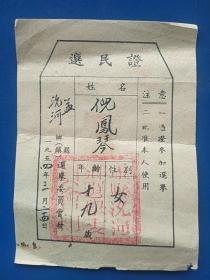 選民證
注意
一 憑證參加選舉
二 此證本人使用
姓名
倪鳳琴
性別
女
年齡
十九歲
沈河區
選舉委員會發
一九五四年三月二五日